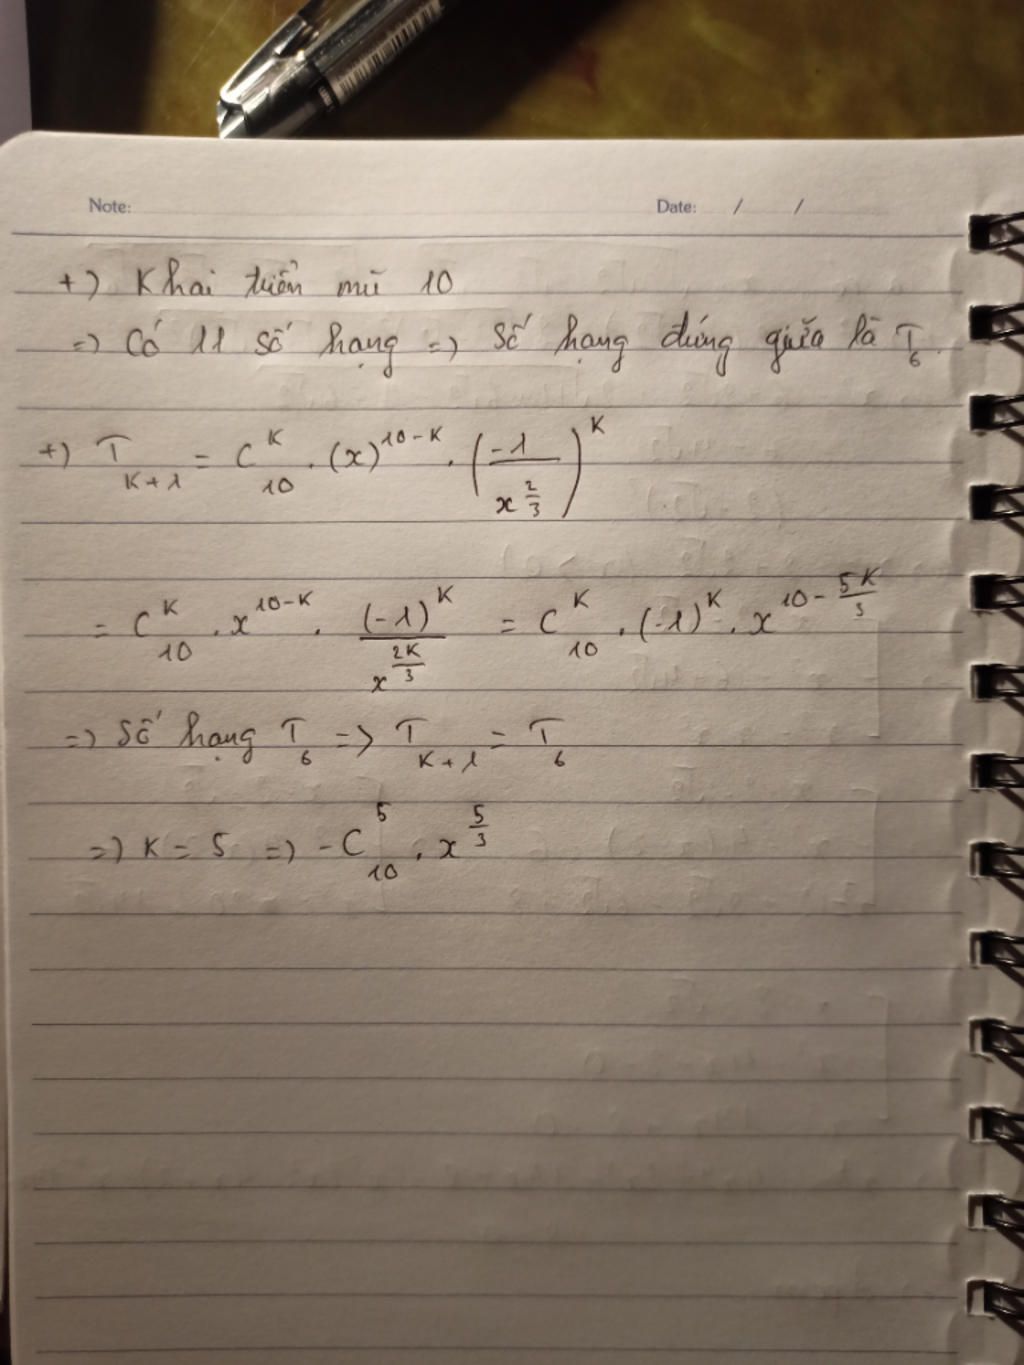 Note: Date: / /
+) Khai triển mũ 10
=) Có 11 số hạng =) Số hạng đứng giữa là T₆.
+) T_{K+1} = C_{10}^{K} . (x)^{10-K} . (\frac{-1}{x^{\frac{2}{3}}})^{K}
= C_{10}^{K} . x^{10-K} . \frac{(-1)^{K}}{x^{\frac{2K}{3}}} = C_{10}^{K} . (-1)^{K} . x^{10-\frac{5K}{3}}
=) Số hạng T₆ => T_{K+1} = T₆
=) K = 5 =) -C_{10}^{5} . x^{\frac{5}{3}}